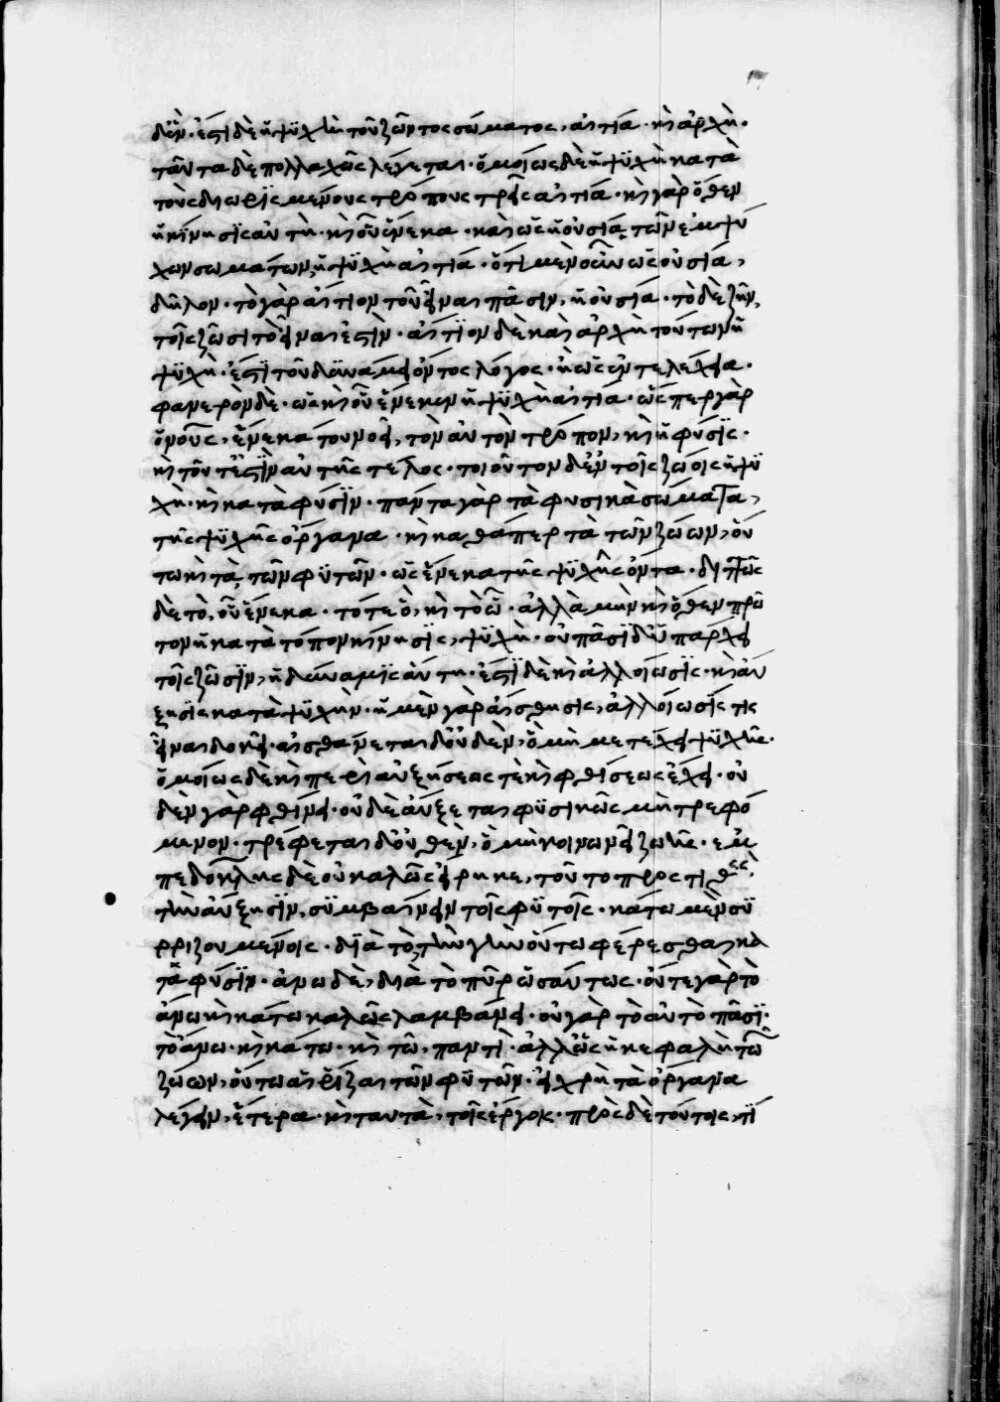 δὲν· ἔστι δὲ ἡ ψυχὴ τοῦ ζῶντος σώματος, αἰτία καὶ ἀρχή·
ταῦτα δὲ πολλαχῶς λέγεται· ὁμοίως δὲ ἡ ψυχὴ κατὰ
τοὺς διωρισμένους τρόπους τρεῖς αἰτία· καὶ γὰρ ὅθεν
ἡ κίνησις αὐτὴ· καὶ οὗ ἕνεκα· καὶ ὡς ἡ οὐσία τῶν ἐμψύ
χων σωμάτων, ἡ ψυχὴ αἰτία· ὅτι μὲν οὖν ὡς οὐσία,
δῆλον· τὸ γὰρ αἴτιον τοῦ εἶναι πᾶσιν, ἡ οὐσία· τὸ δὲ ζῆν,
τοῖς ζῶσι τὸ εἶναι ἐστὶν· αἴτιον δὲ καὶ ἀρχὴ τούτων ἡ
ψυχὴ· ἔστι τοῦ δυνάμει ὄντος λόγος· ἡ ὡς ἐντελέχεια·
φανερὸν δὲ· ὡς καὶ οὗ ἕνεκεν ἡ ψυχὴ αἰτία· ὥσπερ γὰρ
ὁ νοῦς, ἕνεκά του ποιεῖ, τὸν αὐτὸν τρόπον, καὶ ἡ φύσις·
καὶ τοῦτ' ἔστιν αὐτῆς τέλος· τοιοῦτον δ' ἐν τοῖς ζώοις ἡ ψυ
χὴ· καὶ κατὰ φύσιν· πάντα γὰρ τὰ φυσικὰ σώματα,
τῆς ψυχῆς ὄργανα· καὶ καθάπερ τὰ τῶν ζώων, οὕ
τω καὶ τὰ τῶν φυτῶν· ὡς ἕνεκα τῆς ψυχῆς ὄντα· διττῶς
δὲ τὸ, οὗ ἕνεκα· τό τε ὃ, καὶ τὸ ᾧ· ἀλλὰ μὴν καὶ ὅθεν πρῶ
τον ἡ κατὰ τόπον κίνησις, ψυχὴ· οὐ πᾶσι δ' ὑπάρχει
τοῖς ζῶσιν, ἡ δύναμις αὐτη· ἔστι δὲ καὶ ἀλλοίωσις· καὶ αὔ
ξησις κατὰ ψυχὴν· ἡ μὲν γὰρ αἴσθησις, ἀλλοίωσίς τις
εἶναι δοκεῖ· αἰσθάνεται δ' οὐδὲν, ὃ μὴ μετέχει ψυχῆς·
ὁμοίως δὲ καὶ περὶ αὐξήσεώς τε καὶ φθίσεως ἔχει· οὐ
δὲν γὰρ φθίνει· οὐδὲ αὔξεται φυσικῶς μὴ τρεφό
μενον· τρέφεται δ' οὐθὲν, ὃ μὴ κοινωνεῖ ζωῆς· ἐμ
πεδοκλῆς δὲ οὐ καλῶς εἴρηκε, τοῦτο προστιθεὶς
τὴν αὔξησιν, συμβαίνειν τοῖς φυτοῖς· κάτω μὲν συ
ρριζουμένοις· διὰ τὸ τὴν γῆν οὕτω φέρεσθαι κα
τὰ φύσιν· ἄνω δὲ, διὰ τὸ πῦρ ὡσαύτως· οὔτε γὰρ τὸ
ἄνω καὶ κάτω καλῶς λαμβάνει· οὐ γὰρ τὸ αὐτὸ πᾶσι·
τὸ ἄνω· καὶ κάτω· καὶ τῶ, παντὶ· ἀλλ' ὡς ἡ κεφαλὴ τῶν
ζώων, οὕτω αἱ ῥίζαι τῶν φυτῶν· εἰ χρὴ τὰ ὄργανα
λέγειν, ἕτερα· καὶ ταυτὰ, τοῖς ἔργοις· πρὸς δὲ τούτοις, τί